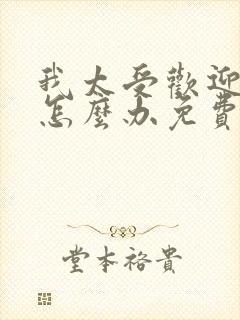 我太受歡迎
怎麼办免費
堂本裕貴